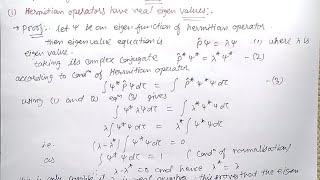 (1) Hermitian operators have real eigen values:-
→ Proof:- Let Ψ be an eigen function of hermitian operator
then eigen value equation is P̂Ψ = λΨ (1) where λ is
eigen value.
taking its complex conjugate P̂*Ψ* = λ*Ψ* -(2)
according to Condⁿ of Hermitian operator
∫Ψ* P̂Ψ dτ = ∫ P̂*Ψ* Ψ dτ -(3)
using (1) and (2) eqⁿ (3) gives
∫Ψ* λΨ dτ = ∫ λ*Ψ* Ψ dτ
λ∫Ψ*Ψ dτ = λ* ∫Ψ*Ψ dτ
i.e. (λ-λ*) ∫Ψ*Ψ dτ = 0
as ∫Ψ*Ψ dτ = 1 { Condⁿ of normalisation }
λ-λ* = 0 and hence λ* = λ
this is only possible if λ is real this proved that the eigen